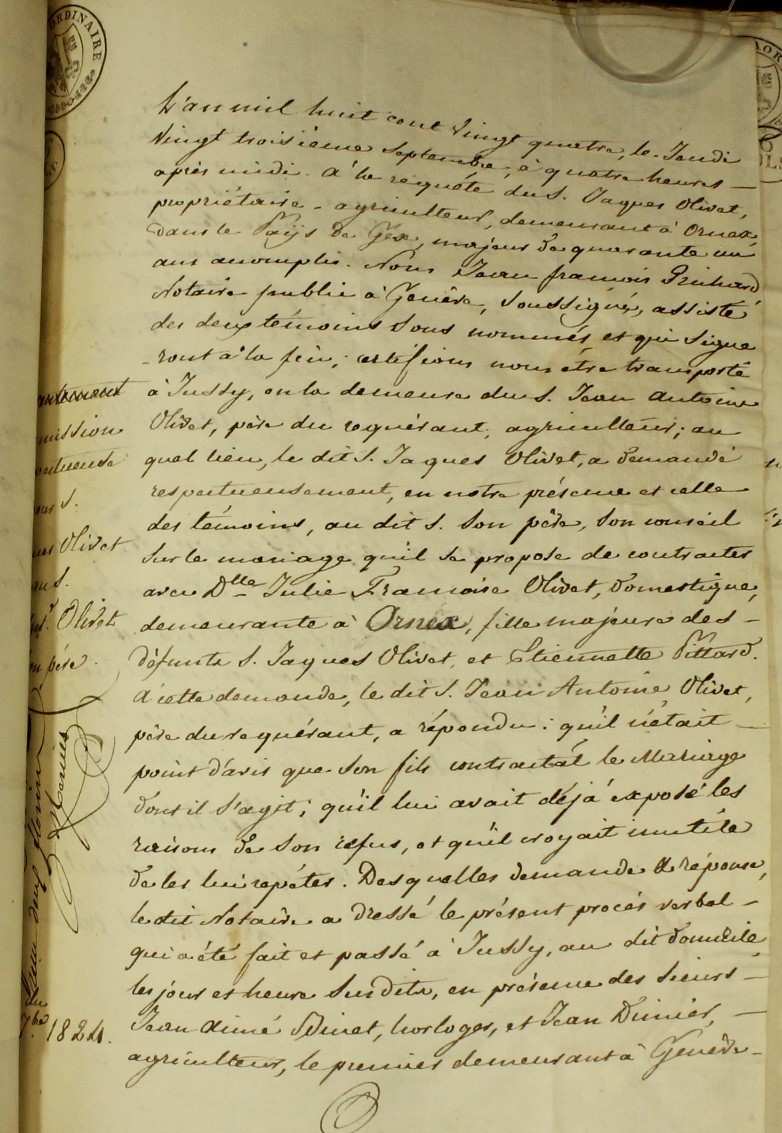 ORDINAIRE
L'an mil huit cent vingt quatre, le Jeudi
vingt troisième Septembre, à quatre heures —
après midi. A la requête du S. Jaques Olivet,
propriétaire - agriculteur, demeurant à Ornex,
dans le Païs de Gex, majeur de quarante un
ans accomplis. Nous Jean françois
Notaire public à Genève, soussigné, assisté
des deux témoins sous nommés et qui signe
-ront à la fin; certifions nous être transporté
à Jussy, en la demeure du S. Jean Antoine
Olivet, père du requérant, agriculteur; au
quel lieu, le dit S. Jaques Olivet, a demandé
respectueusement, en notre présence et celle
des témoins, au dit S. son père, son conseil
sur le mariage qu'il se propose de contracter
avec Dlle Julie Françoise Olivet, domestique,
demeurante à Ornex, fille majeure des —
défunts S. Jaques Olivet, et Etiennette Pittard.
A cette demande, le dit S. Jean Antoine Olivet,
père du requérant, a répondu: qu'il n'était —
point d'avis que son fils contractât le Mariage
dont il s'agit; qu'il lui avait déjà exposé les
raisons de son refus, et qu'il croyait inutile
de les lui repéter. Desquelles demande & réponse,
le dit Notaire a dressé le présent procès verbal —
qui a été fait et passé à Jussy, au dit domicile,
les jour et heure susdits, en présence des Sieurs —
Jean Aimé Binet, horloger, et Jean Dimier, —
agriculteur, le premier demeurant à Genève —
mission
Olivet
Olivet
père.
7bre 1824.